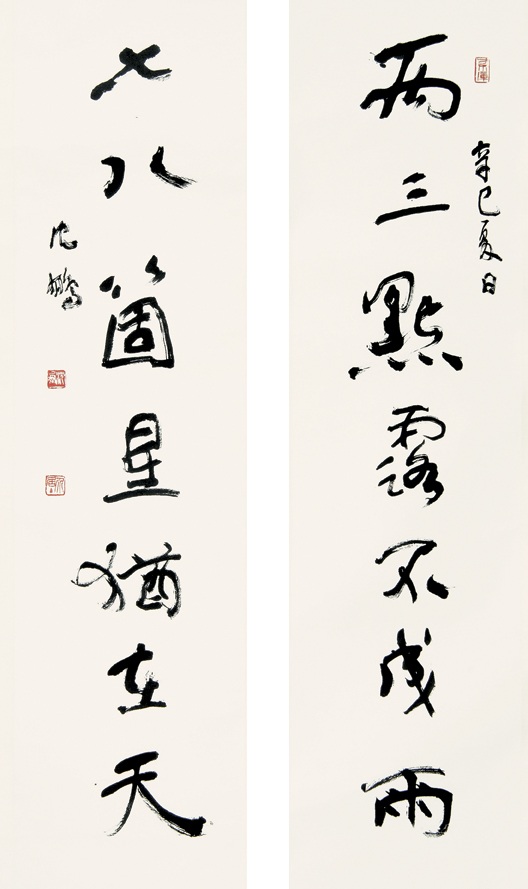 辛巳夏日
两三點露不成雨
七八箇星猶在天
沈鵬